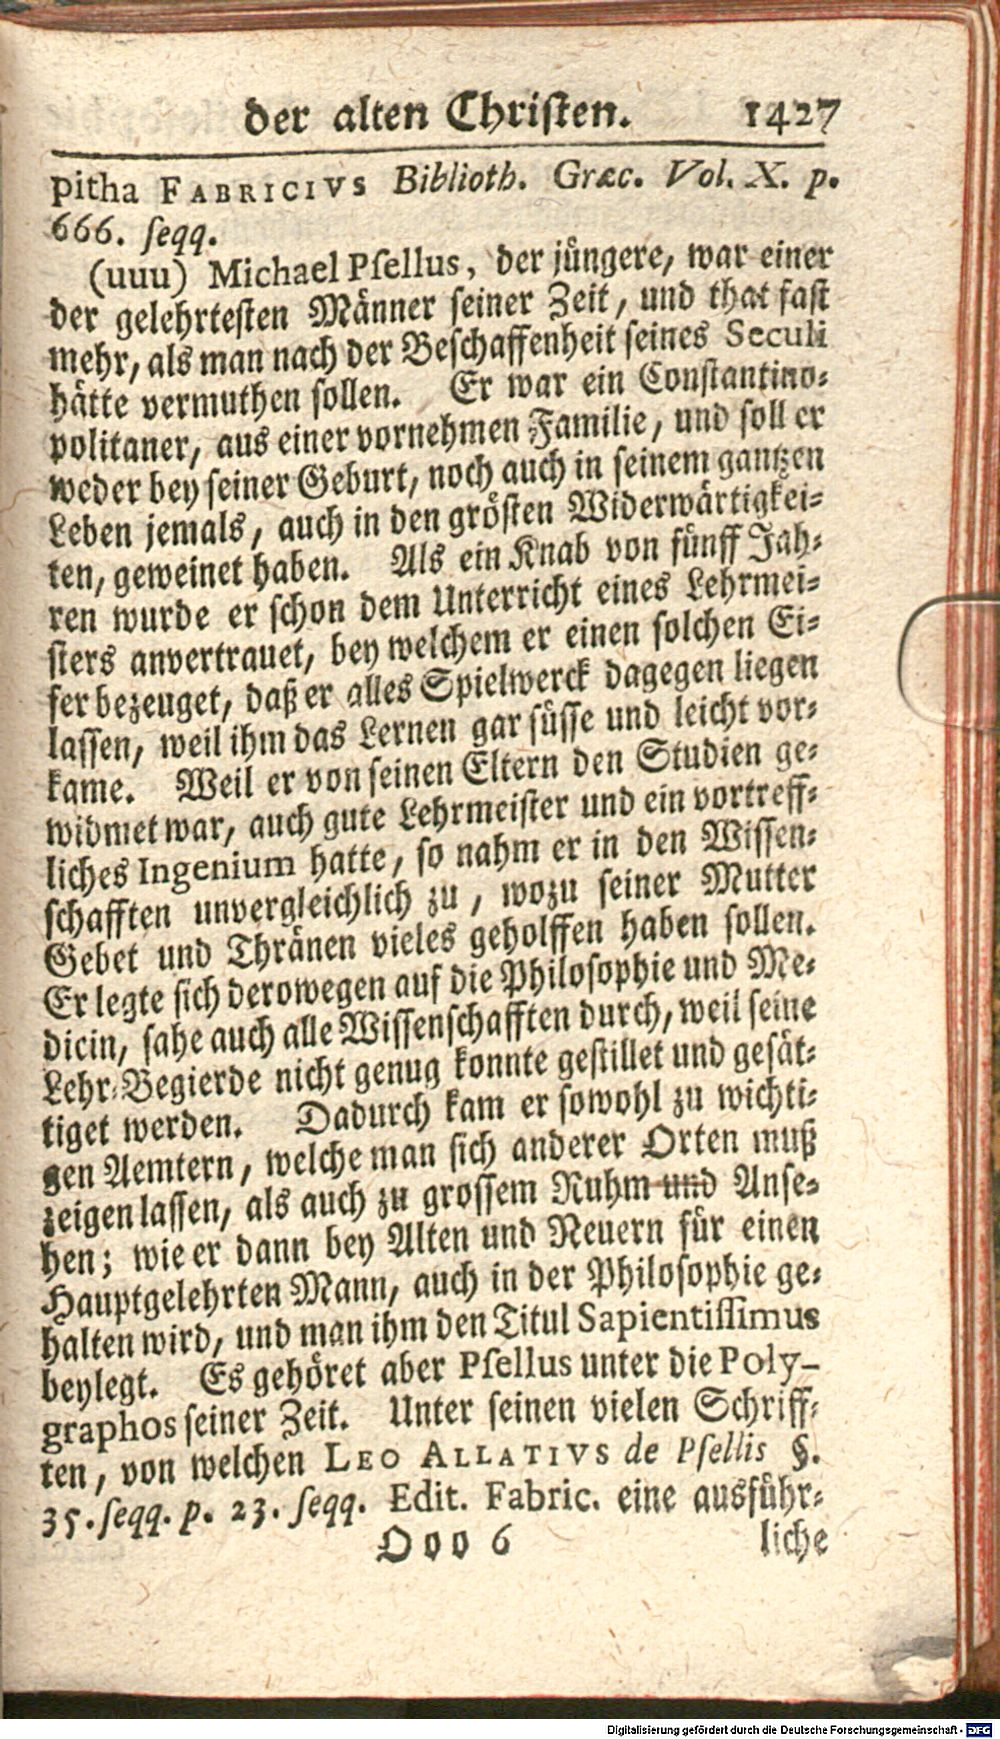 der alten Christen. 1427
pitha FABRICIVS Biblioth. Græc. Vol. X. p.
666. ſeqq.
(uuu) Michael Pſellus, der jüngere, war einer
der gelehrteſten Männer ſeiner Zeit, und that faſt
mehr, als man nach der Beſchaffenheit ſeines Seculi
hätte vermuthen ſollen. Er war ein Conſtantino⸗
politaner, aus einer vornehmen Familie, und ſoll er
weder bey ſeiner Geburt, noch auch in ſeinem gantzen
Leben jemals, auch in den gröſten Widerwärtigkei⸗
ten, geweinet haben. Als ein Knab von fünff Jah⸗
ren wurde er ſchon dem Unterricht eines Lehrmei⸗
ſters anvertrauet, bey welchem er einen ſolchen Ei⸗
fer bezeuget, daß er alles Spielwerck dagegen liegen
laſſen, weil ihm das Lernen gar ſüſſe und leicht vor⸗
kame. Weil er von ſeinen Eltern den Studien ge⸗
widmet war, auch gute Lehrmeiſter und ein vortreff⸗
liches Ingenium hatte, ſo nahm er in den Wiſſen⸗
ſchafften unvergleichlich zu, wozu ſeiner Mutter
Gebet und Thränen vieles geholffen haben ſollen.
Er legte ſich derowegen auf die Philoſophie und Me⸗
dicin, ſahe auch alle Wiſſenſchafften durch, weil ſeine
Lehr⸗Begierde nicht genug konnte geſtillet und geſät⸗
tiget werden. Dadurch kam er ſowohl zu wichti⸗
gen Aemtern, welche man ſich anderer Orten muß
zeigen laſſen, als auch zu groſſem Ruhm und Anſe⸗
hen; wie er dann bey Alten und Neuern für einen
Hauptgelehrten Mann, auch in der Philoſophie ge⸗
halten wird, und man ihm den Titul Sapientiſſimus
beylegt. Es gehöret aber Pſellus unter die Poly-
graphos ſeiner Zeit. Unter ſeinen vielen Schriff⸗
ten, von welchen LEO ALLATIVS de Pſellis §.
35. ſeqq. p. 23. ſeqq. Edit. Fabric. eine ausführ⸗
Ooo 6 liche
Digitalisierung gefördert durch die Deutsche Forschungsgemeinschaft - DFG